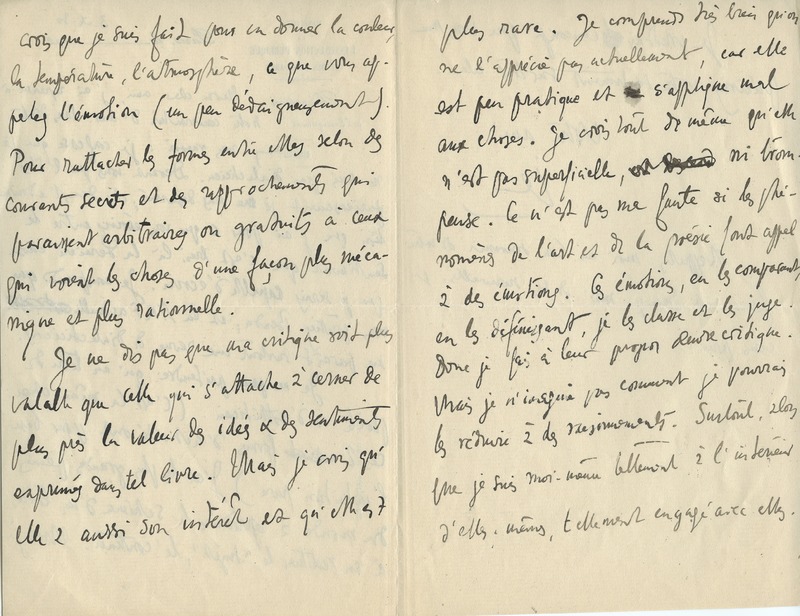 crois que je suis fait pour en donner la couleur,
la température, l'atmosphère, ce que vous ap-
pelez l'émotion (un peu dédaigneusement).
Pour rattacher les formes entre elles selon des
courants secrets et des rapprochements qui
paraissent arbitraires ou gratuits à ceux
qui voient les choses d'une façon plus méca-
nique et plus rationnelle.
Je ne dis pas que ma critique soit plus
valable que celle qui s'attache à cerner de
plus près la valeur des idées & des sentiments
exprimés dans tel livre. Mais je crois qu'
elle a aussi son intérêt et qu'elle est
plus rare. Je comprends très bien qu'on
ne l'apprécie pas actuellement, car elle
est peu pratique et s'applique mal
aux choses. Je crois tout de même qu'elle
n'est pas superficielle, ni trom-
peuse. Ce n'est pas ma faute si les phé-
nomènes de l'art et de la poésie font appel
à des émotions. Ces émotions, en les comparant,
en les définissant, je les classe et les juge.
Donc je fais à leur propos œuvre critique.
Mais je n'imagine pas comment je pourrais
les réduire à des raisonnements. Surtout, alors
que je suis moi-même tellement à l'intérieur
d'elles-mêmes, tellement engagé avec elles.